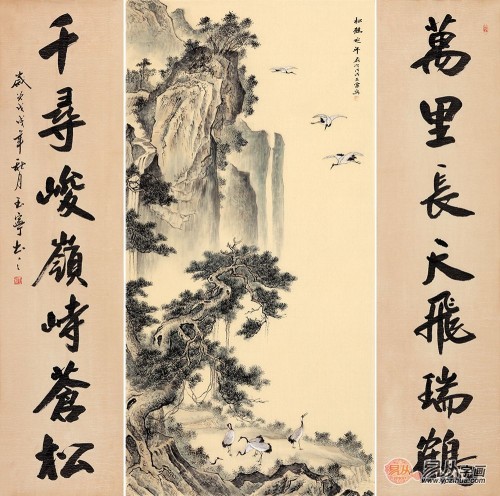 萬里長天飛瑞鶴
千尋峻嶺峙蒼松
歲次戊戌年秋月玉寧書
松鶴延年
易从字画
www.yczihua.com